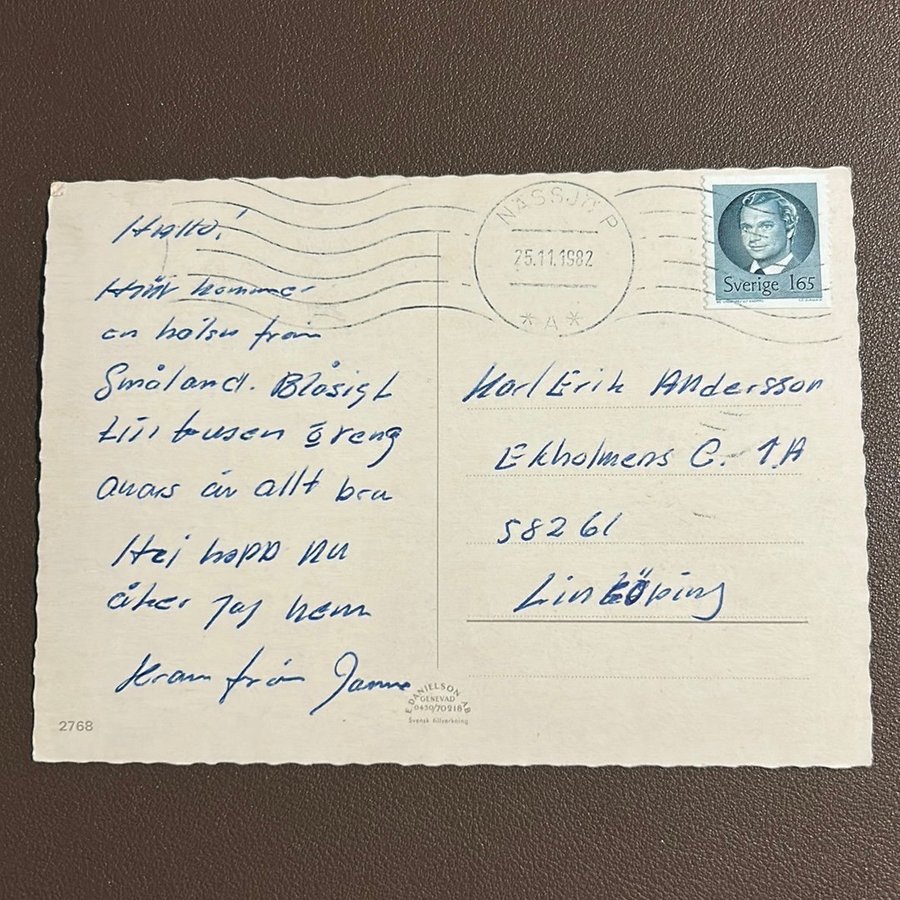 Hallå!
Här kommer
en hälsn från
Småland. Blåsigt
till tusen
anars är allt bra
Hej hopp nu
åker jag hem
Kram från Janne
2768
E. DANIELSON AB
GENEVAD
0430/70218
Svensk tillverkning
NÄSSJÖ P
25.11.1982
* A *
Sverige 165
Karl Erik Andersson
Ekholmens C. 1A
582 61
Linköping